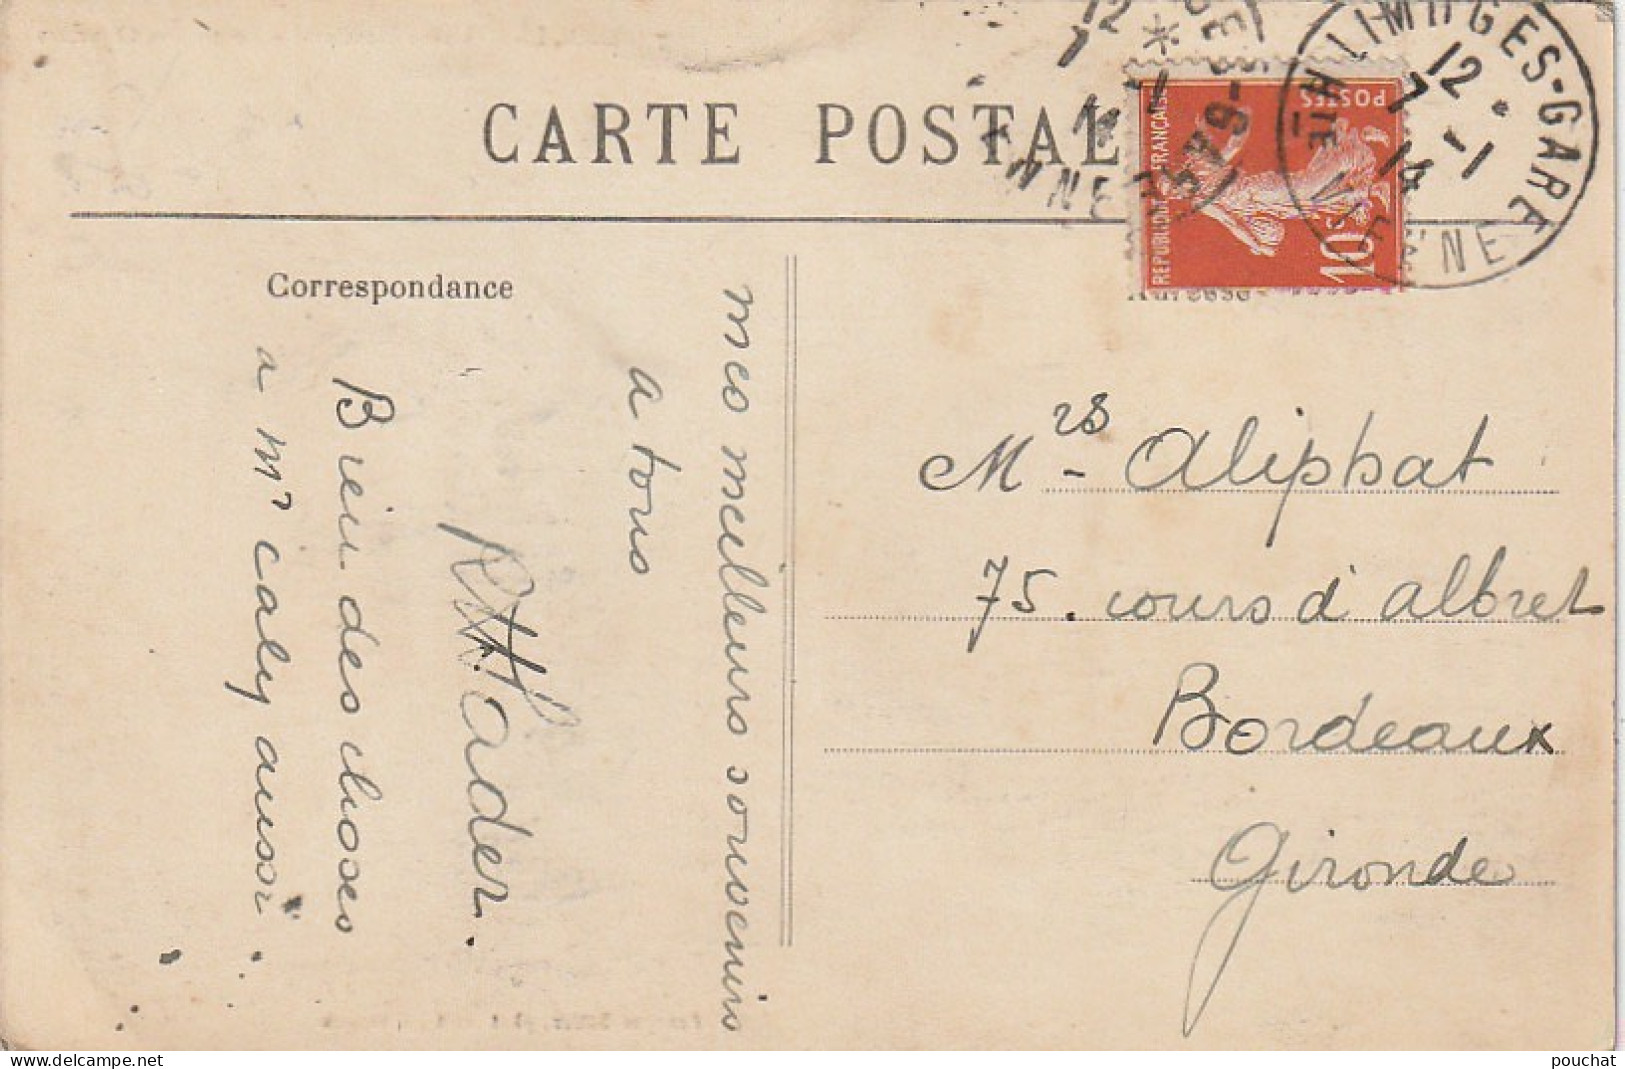 CARTE POSTAL
LIMOGES-GARE
12
7 -1
14
HTE VIENNE
POSTES
REPUBLIQUE FRANÇAISE
10c
Correspondance
mes meilleurs souvenirs
a tous
Bien des choses
a Mr Caly aussi
Mrs Aliphat
75. cours d'albret
Bordeaux
Gironde
pouchat